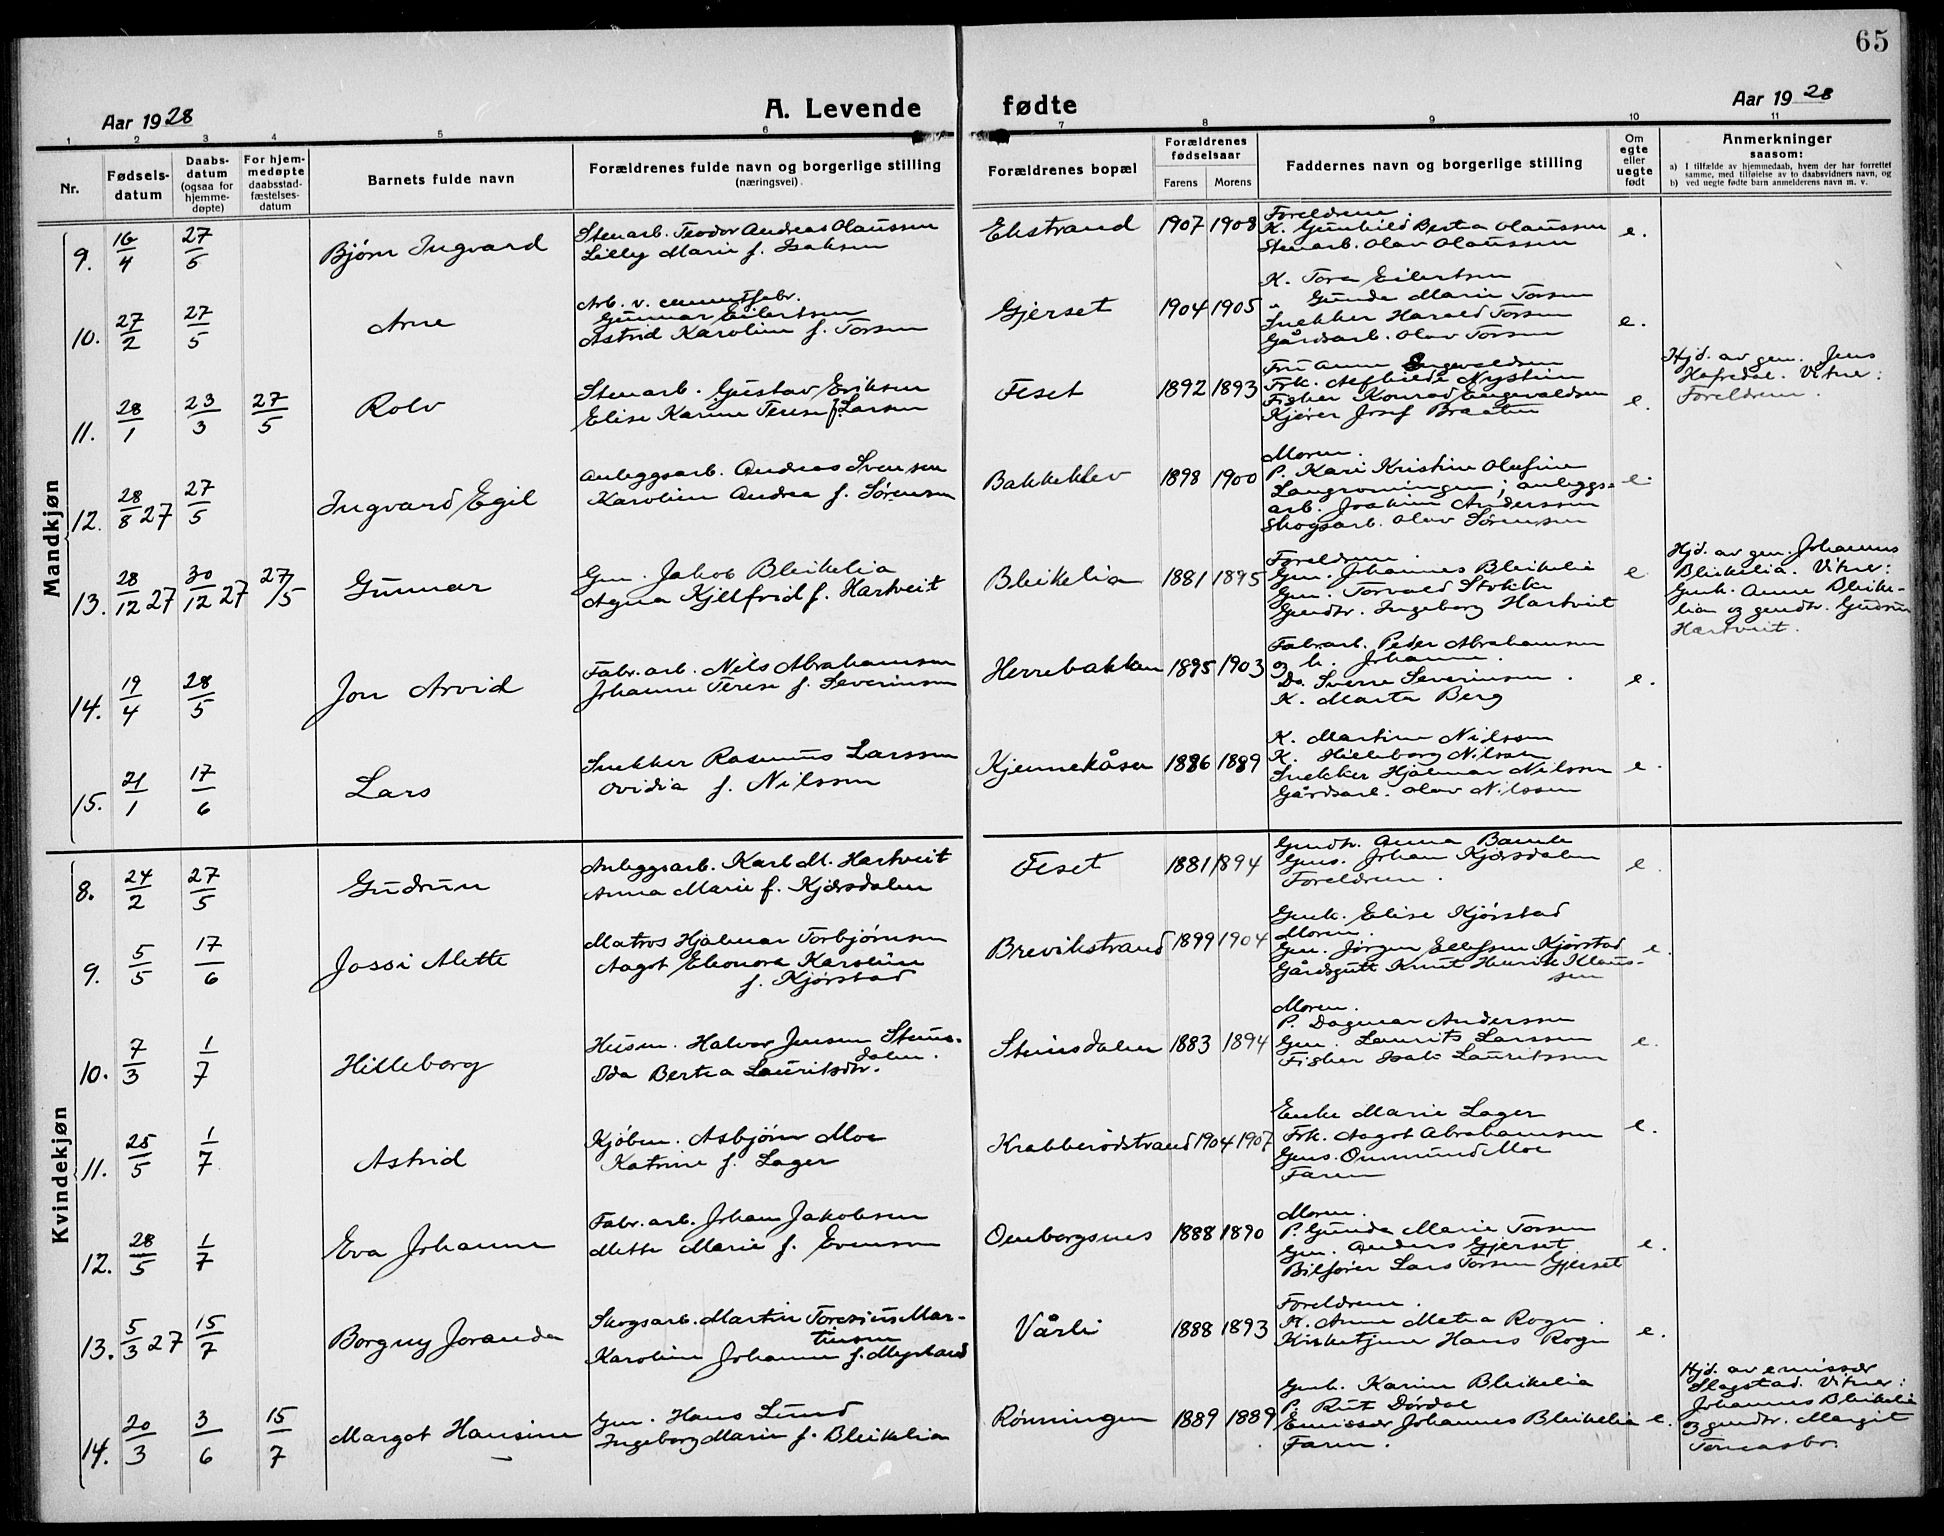 65
Aar 1928
A. Levende fødte
Aar 1928
1 2 3 4 5 6 7 8 9 10 11
Nr.
Fødsels-
datum
Daabs-
datum
(ogsaa for
hjemme-
døpte)
For hjem-
medøpte
daabsstad-
fæstelses-
datum
Barnets fulde navn
Forældrenes fulde navn og borgerlige stilling
(næringsvei).
Forældrenes bopæl
Forældrenes
fødselsaar
Farens Morens
Faddernes navn og borgerlige stilling
Om
egte
eller
uegte
født
Anmerkninger
saasom:
a) I tilfælde av hjemmedaab, hvem der har forrettet
samme, med tilføielse av to daabsvidners navn, og
b) ved uegte fødte barn anmelderens navn m. v.
Mandkjøn
9. 16/4 27/5 Bjørn Ingvard
Stenarb. Teodor Andreas Olaussen
Lilly Marie f. Isaksen
Ekstrand 1907 1908
Foreldrene.
K. Gunhild Berta Olaussen
Stenarb. Olav Olaussen
e.
10. 27/2 27/5 Arne
Arb. v. cementfabr.
Gunnar Eilertsen
Astrid Karoline f. Torsen
Gjerset 1904 1905
K. Tora Eilertsen
" Gunda Marie Torsen
Snekker Harald Torsen
Gårdsarb. Olav Torsen
e.
11. 28/1 23/3 27/5 Rolv
Stenarb. Gustav Eriksen
Elise Karine Terese f. Larsen
Feset 1892 1893
Fru Anna Engevaldsen
Frk. Alfhilde Nystein
Fisker Konrad Engevaldsen
Kjører Josef Braaten
e.
Hjd. av gm. Jens
Hafredal. Vitner:
Foreldrene.
12. 28/8 27 27/5 Ingvard Egil
Anleggsarb. Andreas Svensen
Karoline Andrea f. Sørensen
Bakkeklev 1898 1900
Moren.
P. Kari Kristine Olufine
Langroningen; anleggs-
arb. Joakim Anderssen
Skogsarb. Olav Sørensen
e.
13. 28/12 27 30/12 27 27/5 Gunnar
Gm. Jakob Bleikelia
Agna Kjellfrid f. Hartveit
Bleikelia 1881 1895
Foreldrene.
Gm. Johannes Bleikelia
Gm. Torvald Stokke
Gmdtr. Ingeborg Hartveit
e.
Hjd. av gm. Johannes
Bleikelia. Vitner:
Gmk. Anne Bleike-
lia og gmdtr. Gudrun
Hartveit.
14. 19/4 28/5 Jon Arvid
Fabr. arb. Nils Abrahamsen
Johanne Terese f. Severinsen
Herrebakken 1895 1903
Fabr.arb. Peder Abrahamsen
og h. Johanne.
Do. Sverre Severinsen.
K. Marta Berg
e.
15. 21/1 17/6 Lars
Snekker Rasmus Larssen
Ovidia f. Nilssen
Kjennekåsa 1886 1889
K. Martine Nilssen
K. Hilleborg Nilssen
Snekker Hjalmar Nilssen
Gårdsarb. Olav Nilssen
e.
Kvindekjøn
8. 24/2 27/5 Gudrun
Anleggsarb. Karl M. Hartveit
Anna Marie f. Kjærsdalen
Feset 1881 1894
Gmdtr. Anna Bamle
Gms. Johan Kjærsdalen
Foreldrene.
e.
9. 5/5 17/6 Jossi Alette
Matros Hjalmar Torbjørnsen
Aagot Eleonora Karoline
f. Kjørstad
Brevikstrand 1899 1904
Gmk. Elise Kjørstad
Moren.
Gm. Jørgen Ellefsen Kjørstad
Gårdsgutt Knut Henrik Klaus-
sen
e.
10. 7/3 1/7 Hilleborg
Husm. Halvor Jensen Steins-
dalen.
Ida Bertea Lauritsdtr.
Steinsdalen 1883 1894
Moren.
P. Dagmar Anderssen
Gm. Laurits Larssen
Fisker Isak Lauritssen
e.
11. 25/5 1/7 Astrid
Kjøbm. Asbjørn Moe
Katrine f. Lager
Krabberødstrand 1904 1907
Enke Marie Lager
Frk. Aagot Abrahamsen
Gms. Ommund Moe
Faren
e.
12. 28/5 1/7 Eva Johanne
Fabr. arb. Johan Jakobsen
Mette Marie f. Evensen
Omborgsnes 1888 1890
Moren.
P. Gunda Marie Torsen
Gm. Anders Gjerset
Bilfører Lars Torsen Gjerset
e.
13. 5/3 27 15/7 Borgny Joranda
Skogsarb. Martin Toresius Mar-
tinsen
Karoline Johanne f. Myrland
Vårli 1888 1893
Foreldrene.
K. Anne Metea Rogn.
Kirketjener Hans Rogn
e.
14. 20/3 3/6 15/7 Margot Hansine
Gm. Hans Lund
Ingeborg Marie f. Bleikelia
Rønningen 1889 1889
Gmk. Karine Bleikelia
P. Rut Dørdal
Emissær Johannes Bleikelia
Faren.
e.
Hjd. av emissær
Slagstad. Vitner:
Johannes Bleikelia
og gmdtr. Margit